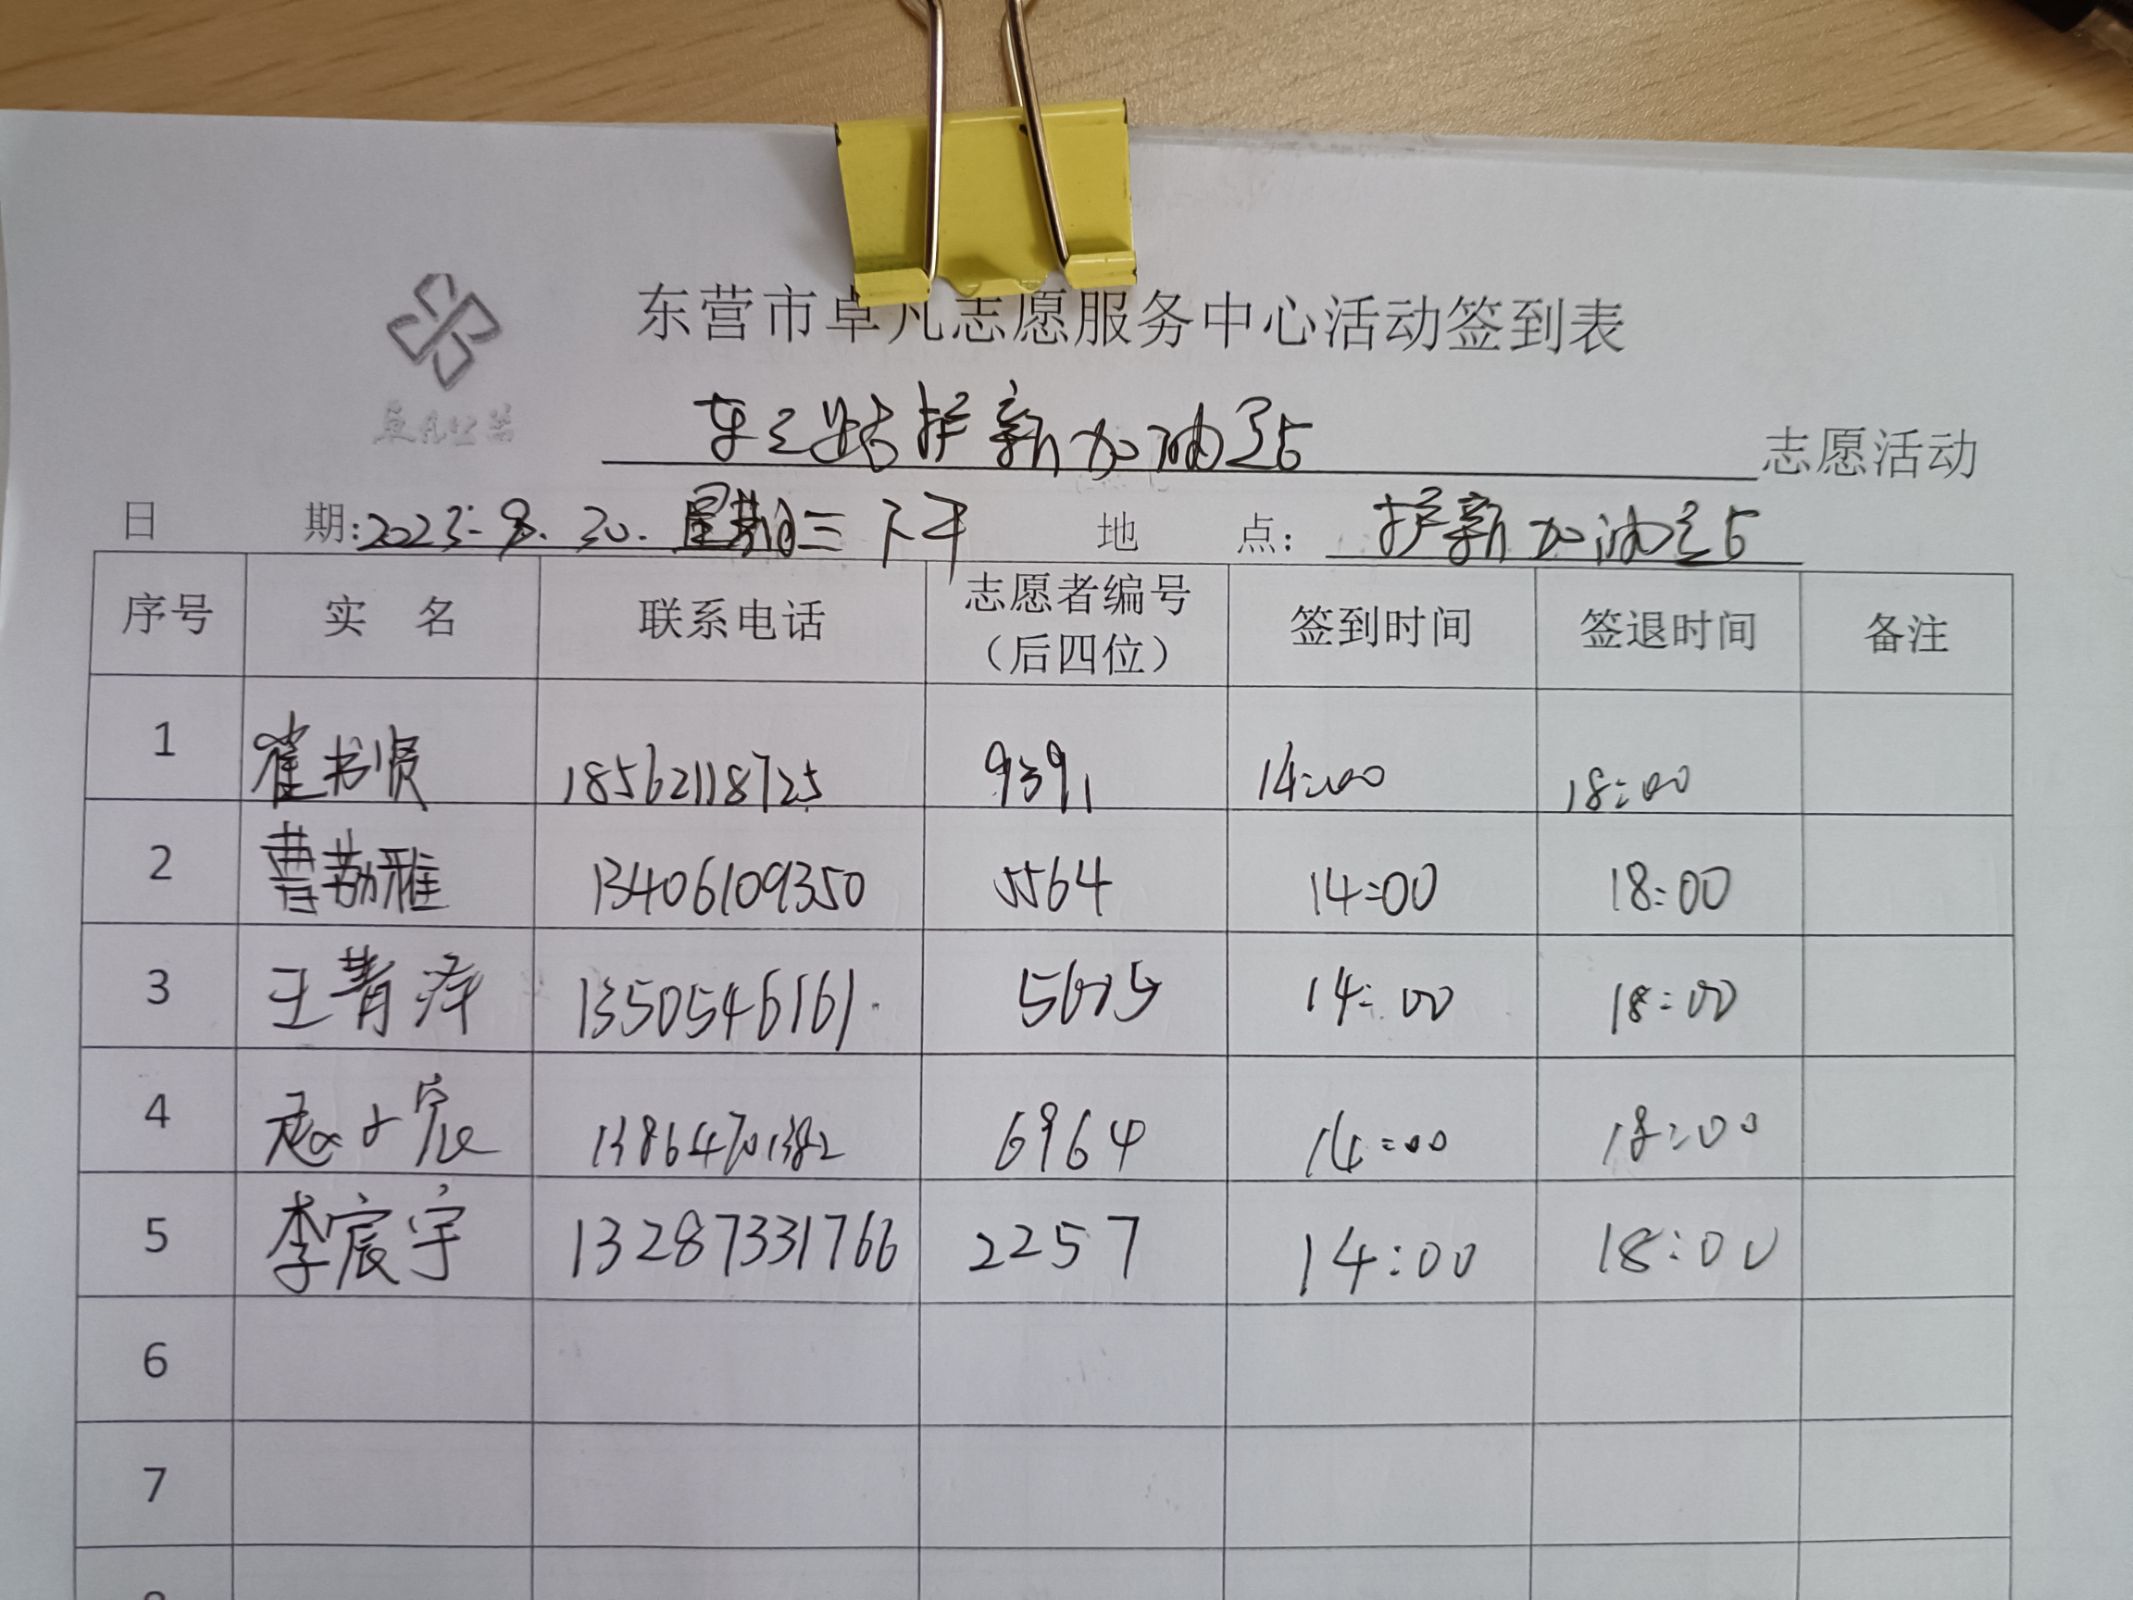 东营市卓凡志愿服务中心活动签到表
护新加油 志愿活动
日 期: 2023.8.30. 星期三 下午 地 点: 护新加油
序号 实 名 联系电话 志愿者编号(后四位) 签到时间 签退时间 备注
1 崔书贤 18562118725 9391 14:00 18:00
2 曹勤雅 13406109350 5564 14:00 18:00
3 王菁泽 13505546161 14:00 18:00
4 赵 宸 13864701382 6964 14:00 18:00
5 李宸宇 13287331766 2257 14:00 18:00
6
7